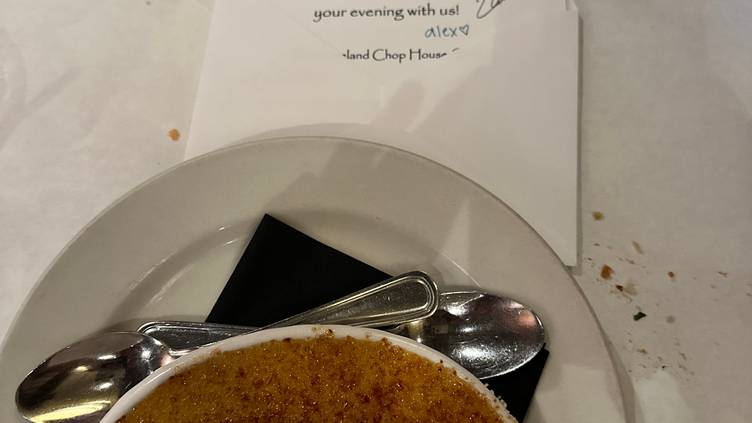 your evening with us!
alex♡
land Chop House